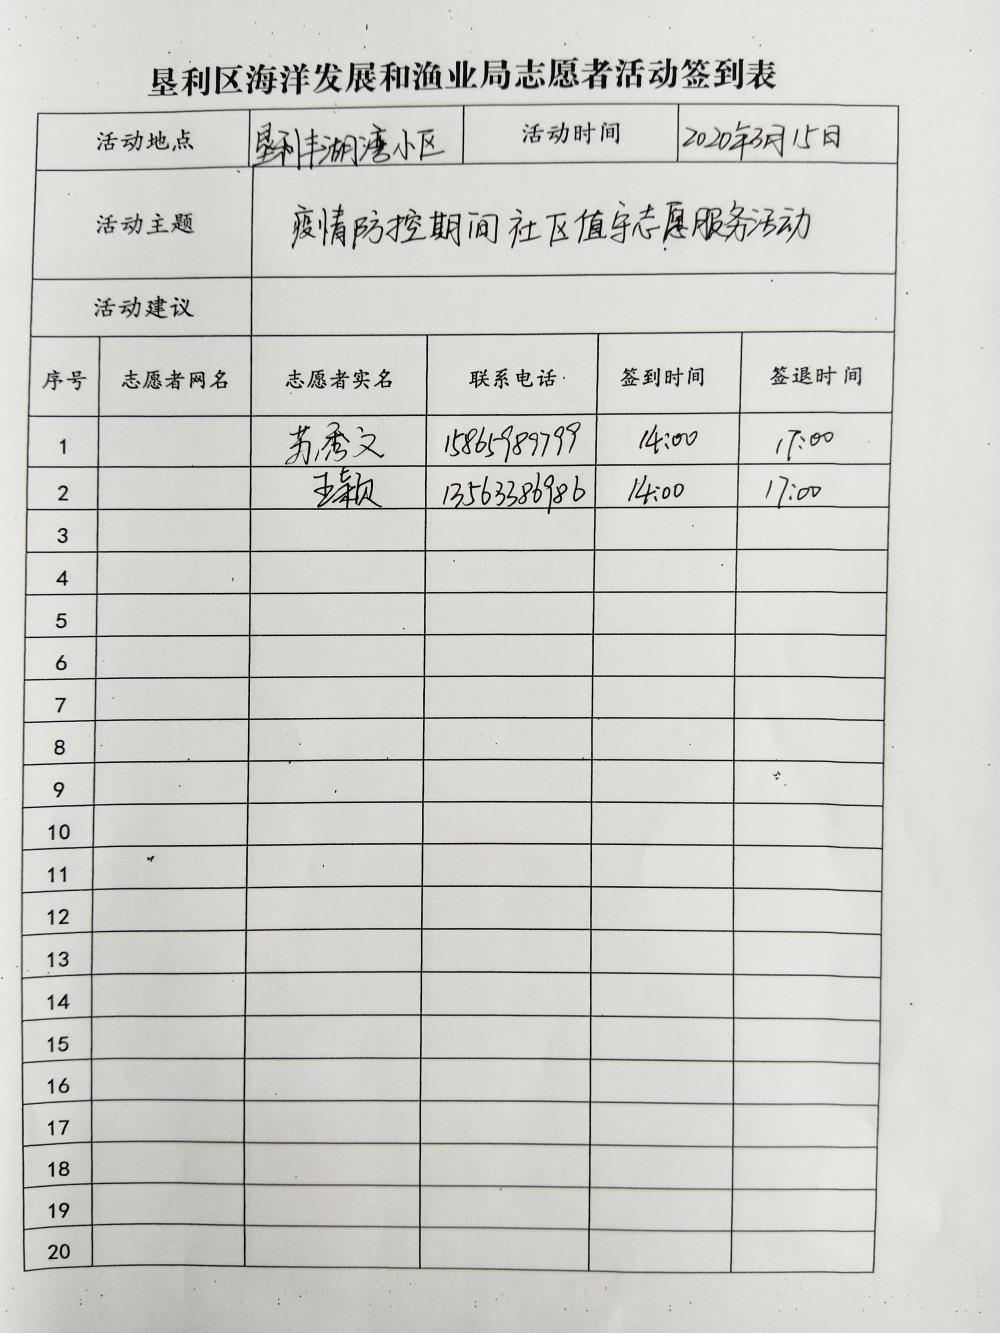 垦利区海洋发展和渔业局志愿者活动签到表
活动地点 垦利丰湖湾小区 活动时间 2020年3月15日
活动主题 疫情防控期间社区值守志愿服务活动
活动建议
序号 志愿者网名 志愿者实名 联系电话 签到时间 签退时间
1 苏秀文 15865989799 14:00 17:00
2 王颖 13563386986 14:00 17:00
3
4
5
6
7
8
9
10
11
12
13
14
15
16
17
18
19
20